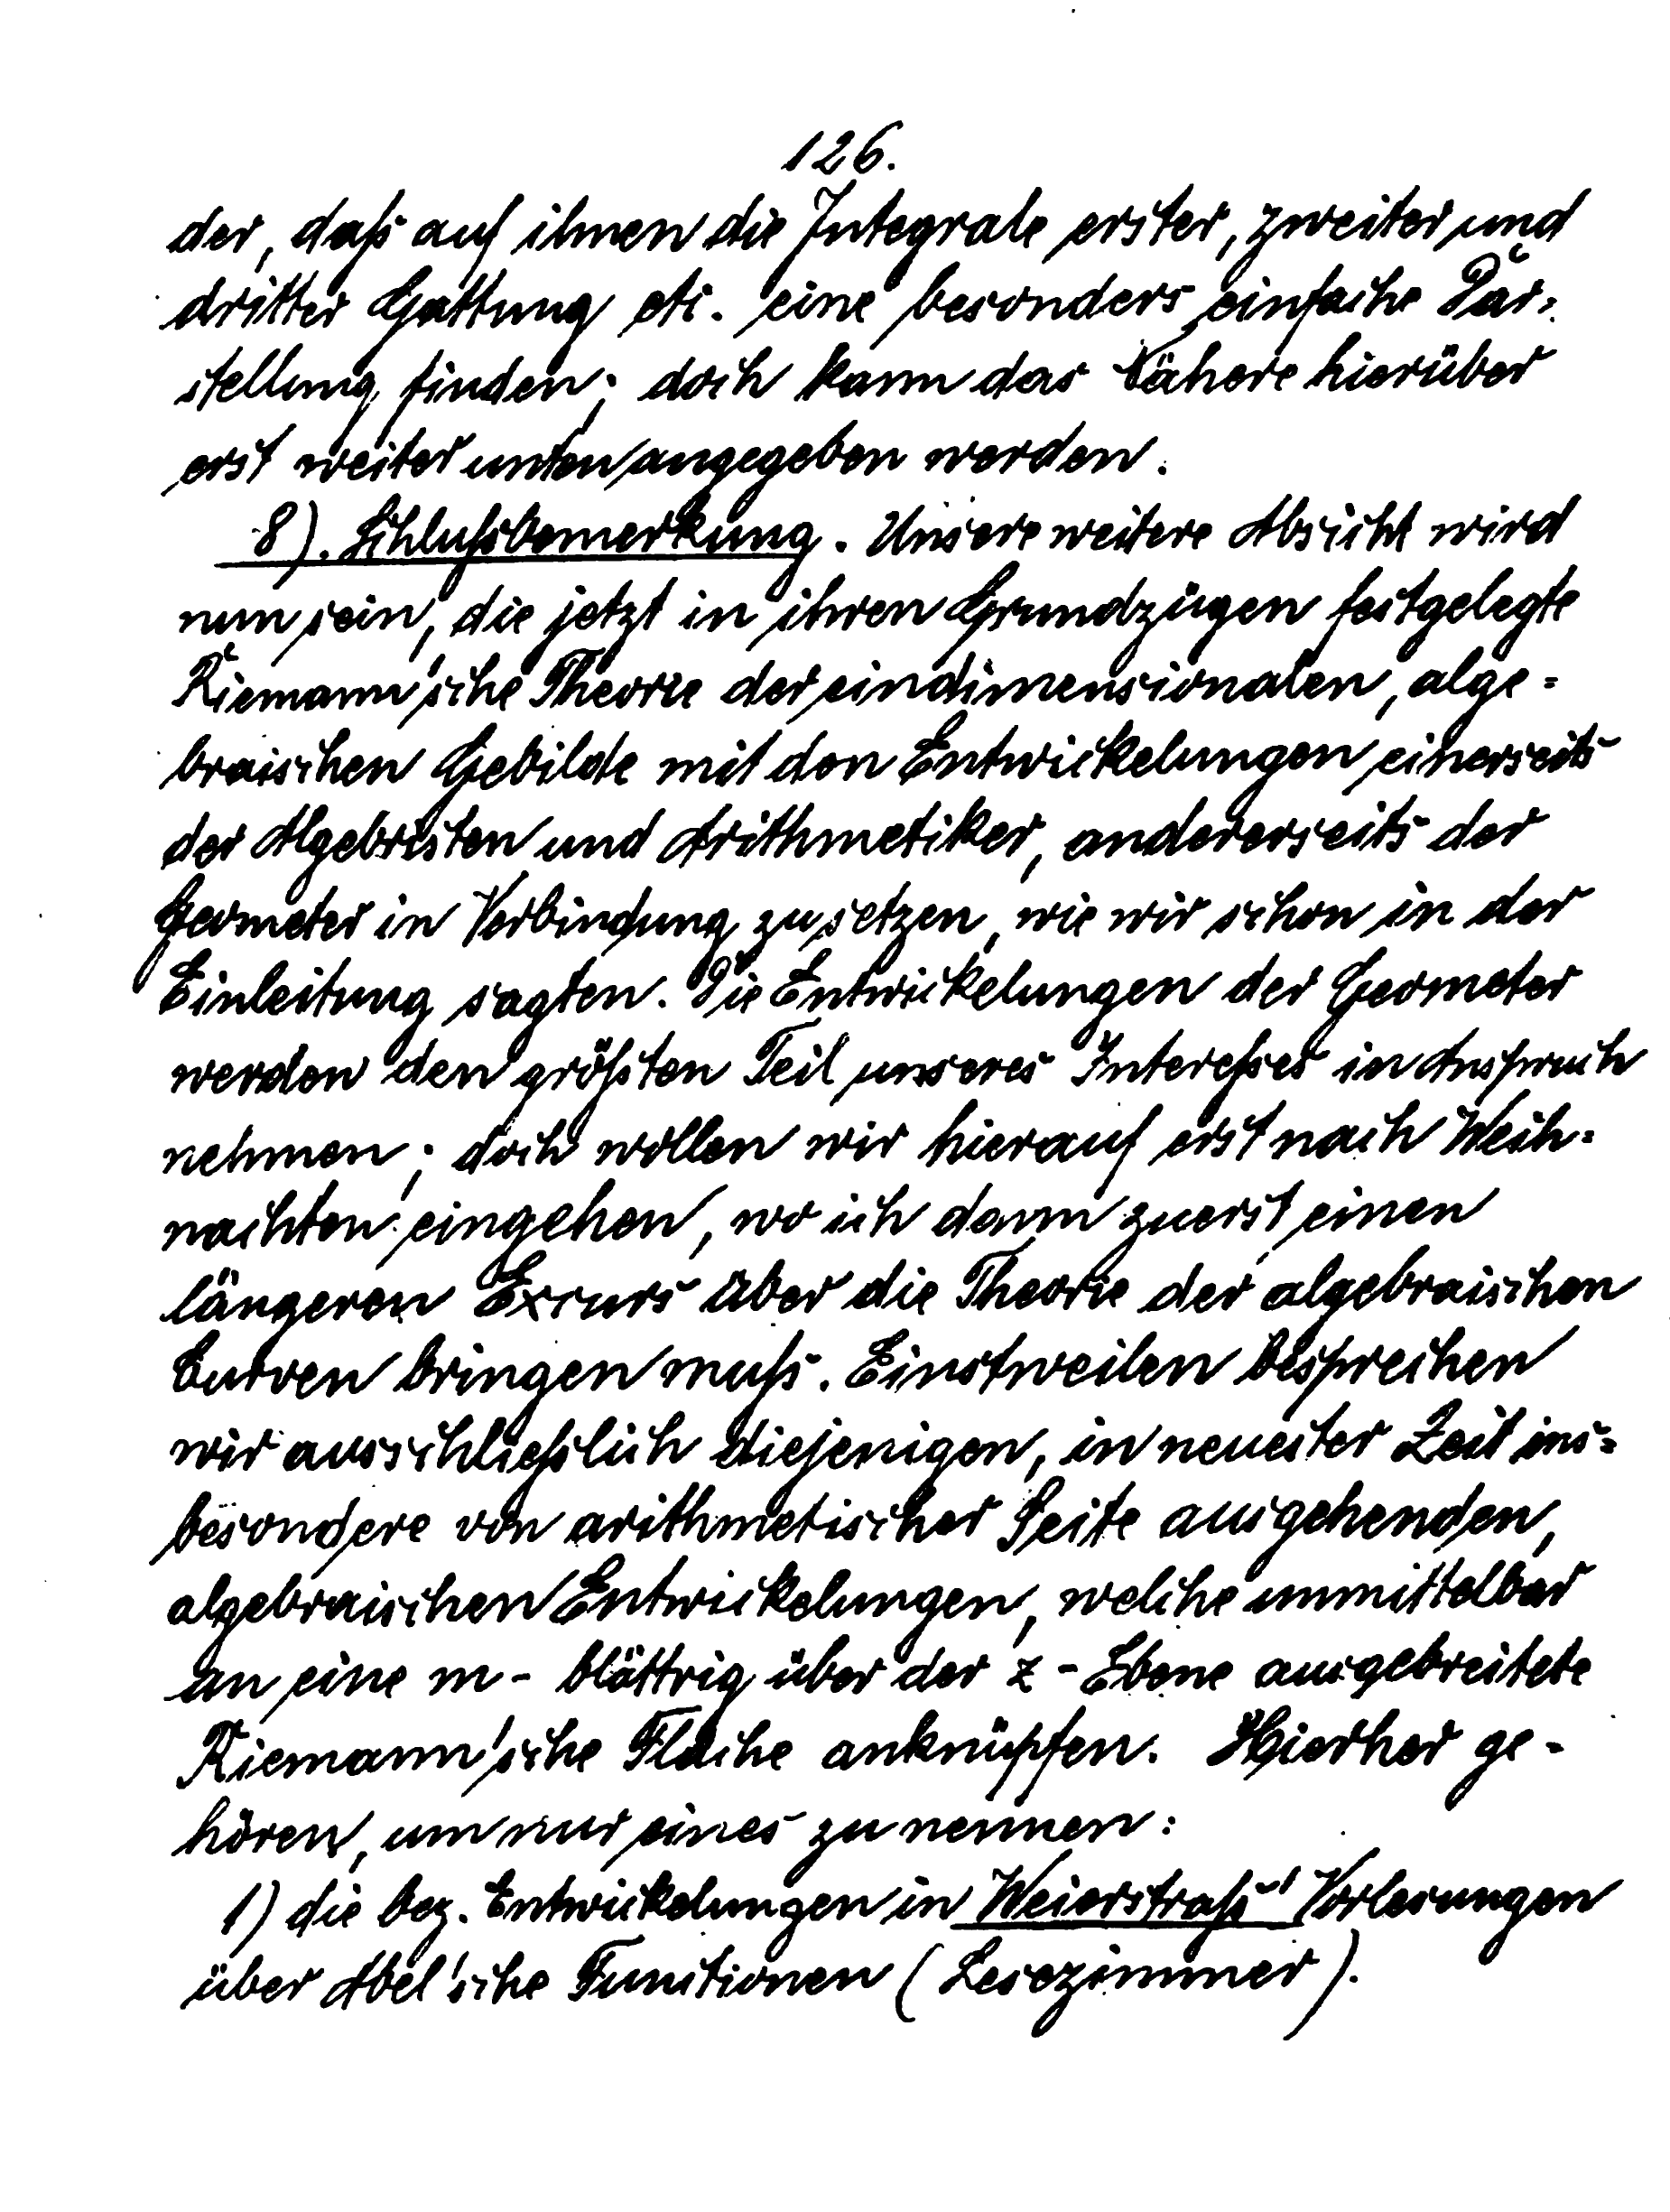 126.
der, daß auf ihnen die Integrale erster, zweiter und
dritter Gattung etc. eine besonders einfache Dar=
stellung finden; doch kann das Nähere hierüber
erst weiter unten angegeben werden.
8). Schlußbemerkung. Unsere weitere Absicht wird
nun sein, die jetzt in ihren Grundzügen festgelegte
Riemann'sche Theorie der eindimensionalen, alge=
braischen Gebilde mit den Entwickelungen einerseits
der Algebristen und Arithmetiker, andererseits der
Geometer in Verbindung zu setzen, wie wir schon in der
Einleitung sagten. Die Entwickelungen der Geometer
werden den größten Teil unseres Interesses in Anspruch
nehmen; doch wollen wir hierauf erst nach Weih=
nachten eingehen, wo ich dann zuerst einen
längeren Excurs über die Theorie der algebraischen
Curven bringen muß. Einstweilen besprechen
wir ausschließlich diejenigen, in neuester Zeit ins=
besondere von arithmetischer Seite ausgehenden,
algebraischen Entwickelungen, welche unmittelbar
an eine m-blättrig über der z-Ebene ausgebreitete
Riemann'sche Fläche anknüpfen. Hierher ge-
hören, um nur eines zu nennen:
1) die bez. Entwickelungen in Weierstraß' Vorlesungen
über Abel'sche Functionen (Lesezimmer).